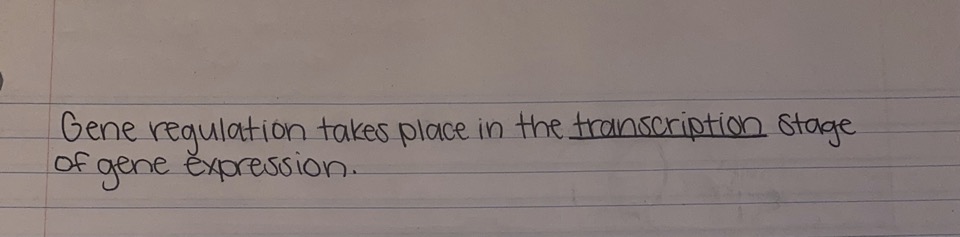 Gene regulation takes place in the transcription stage
of gene expression.